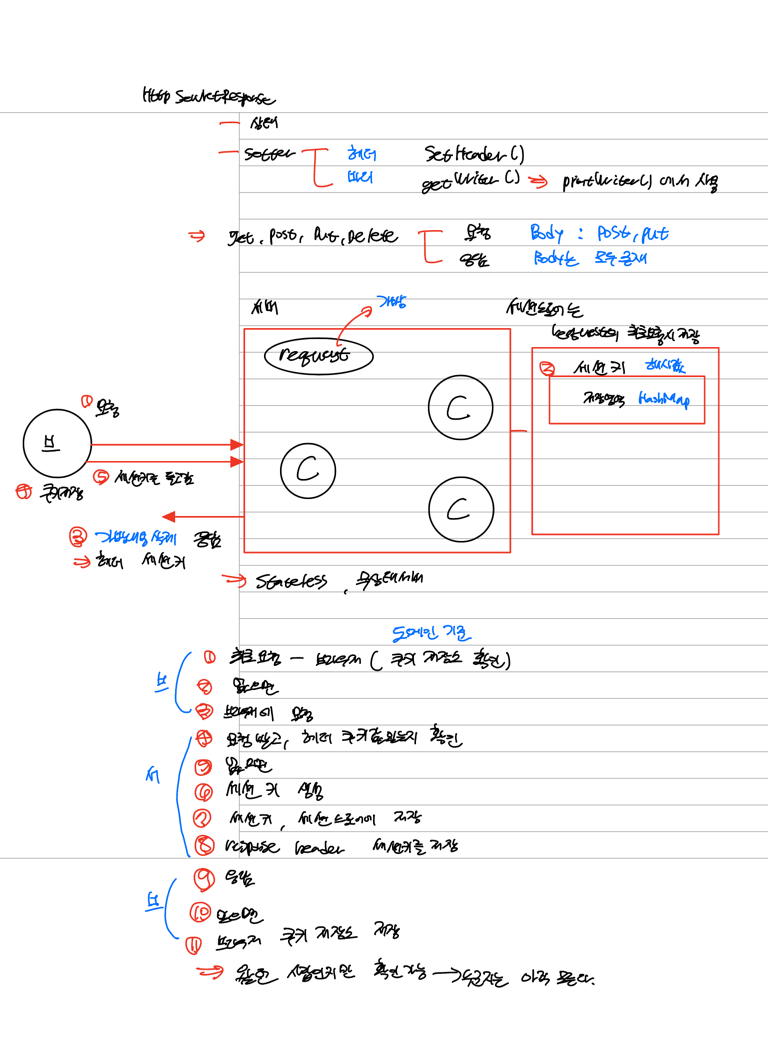 Http Servlet Response
상태
Setter 헤더 SetHeader()
바디 getWriter() ⇒ printWriter() 에서 사용
⇒ get, Post, Put, Delete 요청 Body : Post, put
응답 Body는 모두 존재
서버 가방 세션스토어는
request의 최초요청시 저장
request
② 세션 키 해시값
저장영역 HashMap
C
C
C
① 요청
브
⑤ 세션키를 들고감
④ 쿠키저장
③ 가방내용삭제 응답
⇒ 헤더 세션키
⇒ Stateless , 무상태서버
도메인 기준
브
① 최초요청 - 브라우저 ( 쿠키 저장소 확인)
② 없으면
③ 요청
서
④ 요청 받고, 헤더 쿠키값있는지 확인
⑤ 없으면
⑥ 세션 키 생성
⑦ 세션키, 세션스토어에 저장
⑧ response header 세션키를 저장
브
⑨ 응답
⑩
⑪ 브라우저 쿠키 저장소 저장
⇒ 확인가능 → 누군지는 아직 모른다.